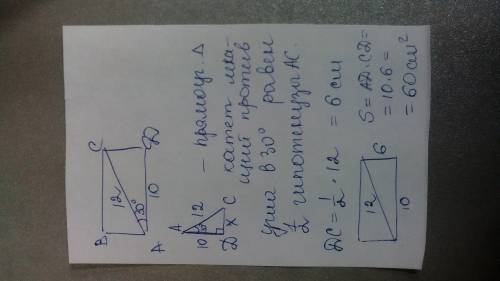 B C
12
30°
A 10 D
A
10 30° 12
D x C
— прямоуг. Δ
катет лежа-
щий против
угла в 30° равен
1/2 гипотенузы AC.
DC = 1/2 · 12 = 6 см
12 6
10
S = AD · CD =
= 10 · 6 =
= 60 см²